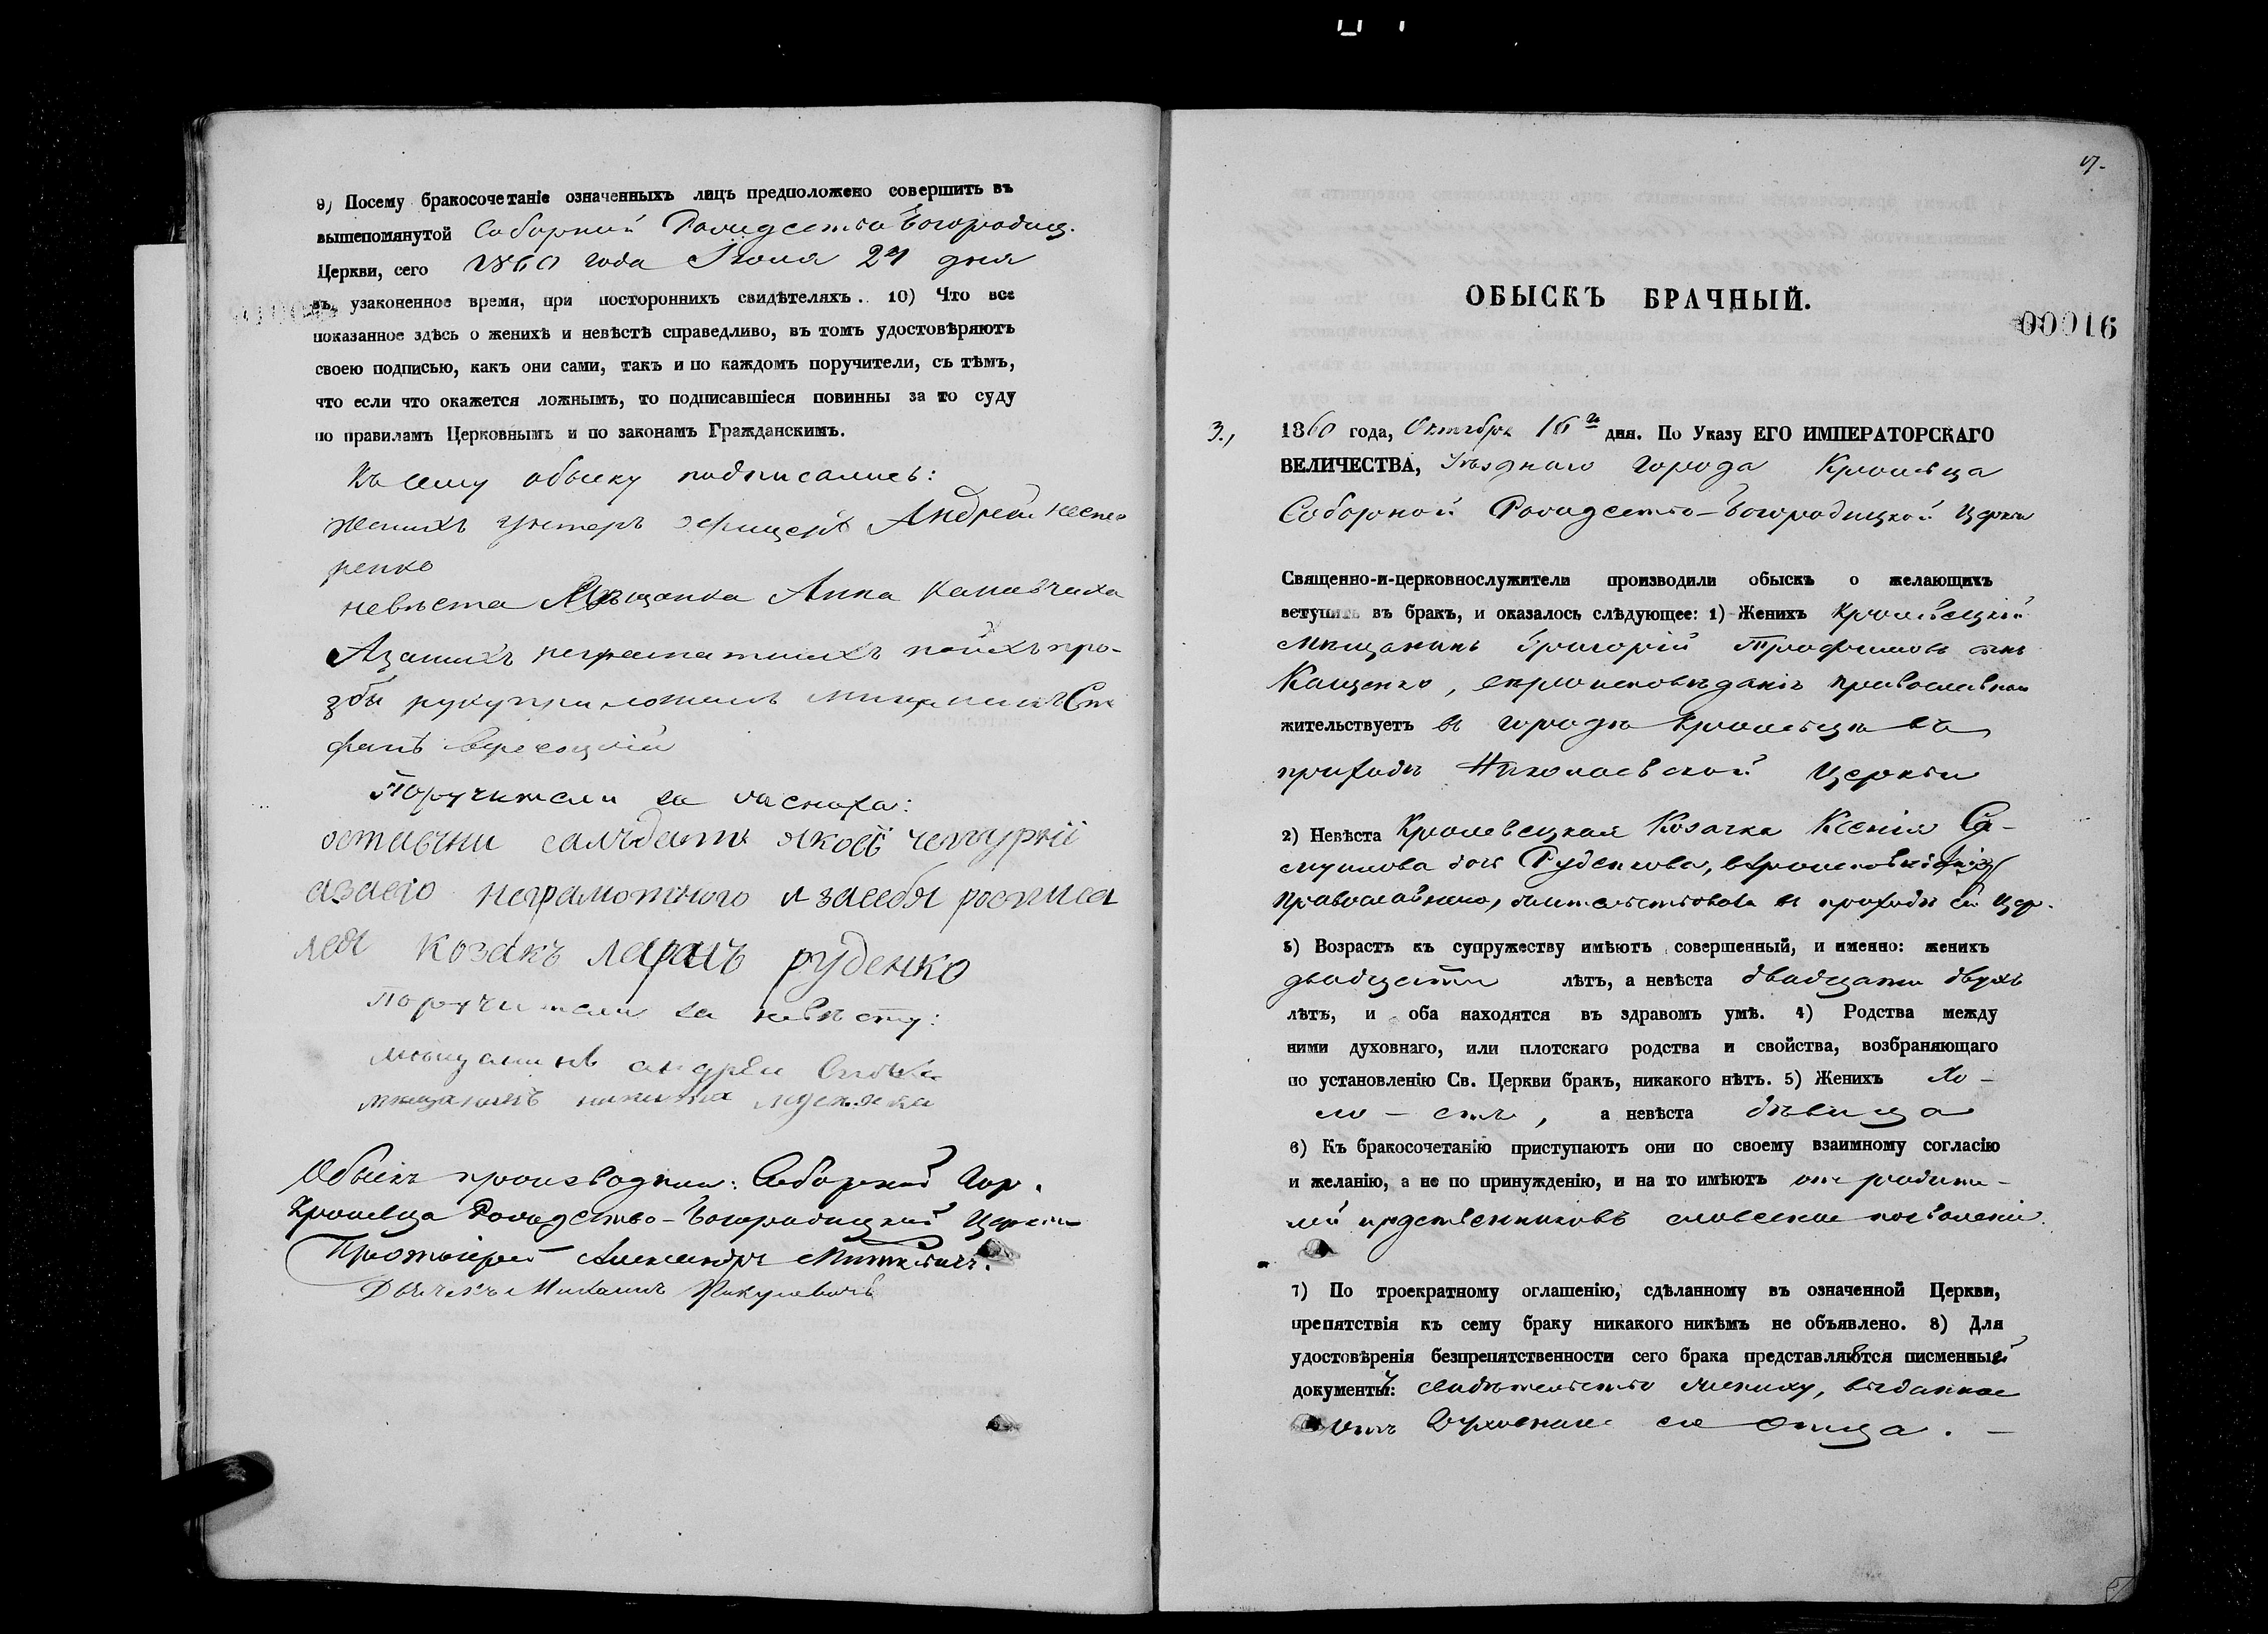 9) Посему бракосочетаніе означенныхъ лицъ предположено совершить въ
вышепомянутой Соборной Рождество Богородиц.
Церкви, сего 1860 года Іюля 24 дня
въ узаконенное время, при постороннихъ свидѣтеляхъ. 10) Что все
показанное здѣсь о женихѣ и невѣстѣ справедливо, въ томъ удостовѣряютъ
своею подписью, какъ они сами, такъ и по каждомъ поручители, съ тѣмъ,
что если что окажется ложнымъ, то подписавшіеся повинны за то суду
по правиламъ Церковнымъ и по законамъ Гражданскимъ.
Къ сему обыску подписались:
женихъ унтеръ офицеръ Андрей Несте
ренко
невѣста Мѣщанка Анна
неграмотныхъ поихъ про-
збы руку приложилъ мищанинъ Сте
фанъ
Поручители за жениха:
оставни салъдатъ
азасіо неграмотного и засебя росписа
лся козакъ ларанъ руденко
Поручители за невѣсту:
мищанинъ андреи
мищанинъ никита
Обыскъ производили: Соборной Гор.
Кролевца Рождество-Богородицкой Церкви
Протоіерей Александръ
Дьячекъ Михаилъ
ОБЫСКЪ БРАЧНЫЙ.
00016
3., 1860 года, Октября 16го дня. По Указу ЕГО ИМПЕРАТОРСКАГО
ВЕЛИЧЕСТВА, Уѣзднаго города Кролевца
Соборной Рождество-Богородицкой Церкви
Священно-и-церковнослужители производили обыскъ о желающихъ
вступить въ бракъ, и оказалось слѣдующее: 1) Женихъ Кролевецкій
Мѣщанинъ Григорій Трофимовъ сынъ
Кащенко, вѣроисповѣданія православнаго
жительствуетъ въ городѣ Кролевцѣ въ
приходѣ Николаевской Церкви
2) Невѣста Кролевецкая Козачка Ксенія Са-
муилова дочь Руденкова, вѣроисповѣданія
Православнаго, жительствовала въ приходѣ сей Цер.
3) Возрастъ къ супружеству имѣютъ совершенный, и именно: женихъ
двадцати лѣтъ, а невѣста двадцати двухъ
лѣтъ, и оба находятся въ здравомъ умѣ. 4) Родства между
ними духовнаго, или плотскаго родства и свойства, возбраняющаго
по установленію Св. Церкви бракъ, никакого нѣтъ. 5) Женихъ хо-
ло-стъ, а невѣста дѣвица
6) Къ бракосочетанію приступаютъ они по своему взаимному согласію
и желанію, а не по принужденію, и на то имѣютъ отъ родите-
лей и родственниковъ словесное позволеніе.
7) По троекратному оглашенію, сдѣланному въ означенной Церкви,
препятствія къ сему браку никакого никѣмъ не объявлено. 8) Для
удостовѣренія безпрепятственности сего брака представляются писменный
документъ: свидѣтельство жениху, выданное
отъ Духовнаго его отца. -